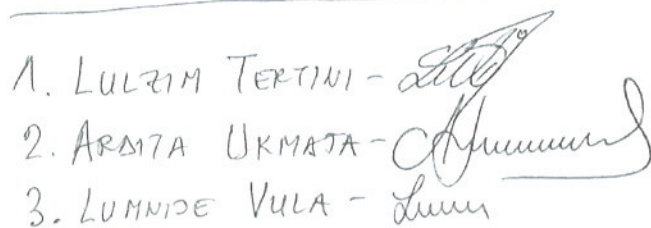 1. LULZIM TERTINI -
2. ARDITA UKMATA -
3. LUMNIJE VULA -